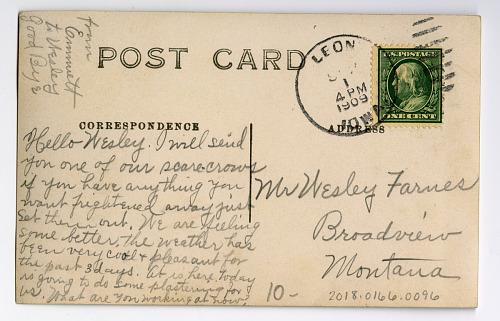 from
Emmmett
to Wesley
Good Bye
POST CARD
LEON
1
4 PM
1909
IOWA
ONE CENT
CORRESPONDENCE
ADDRESS
Hello Wesley. I will send
you one of our scare-crows
if you have anything you
want frightened away just
set them out. We are feeling
some better, the weather has
been very cool & pleasant for
the past 3 days. at is, here, today
is going to do some plastering for
us. What are you working at now,
Mr Wesley Farnes
Broadview
Montana
10-
2018.0166.0096